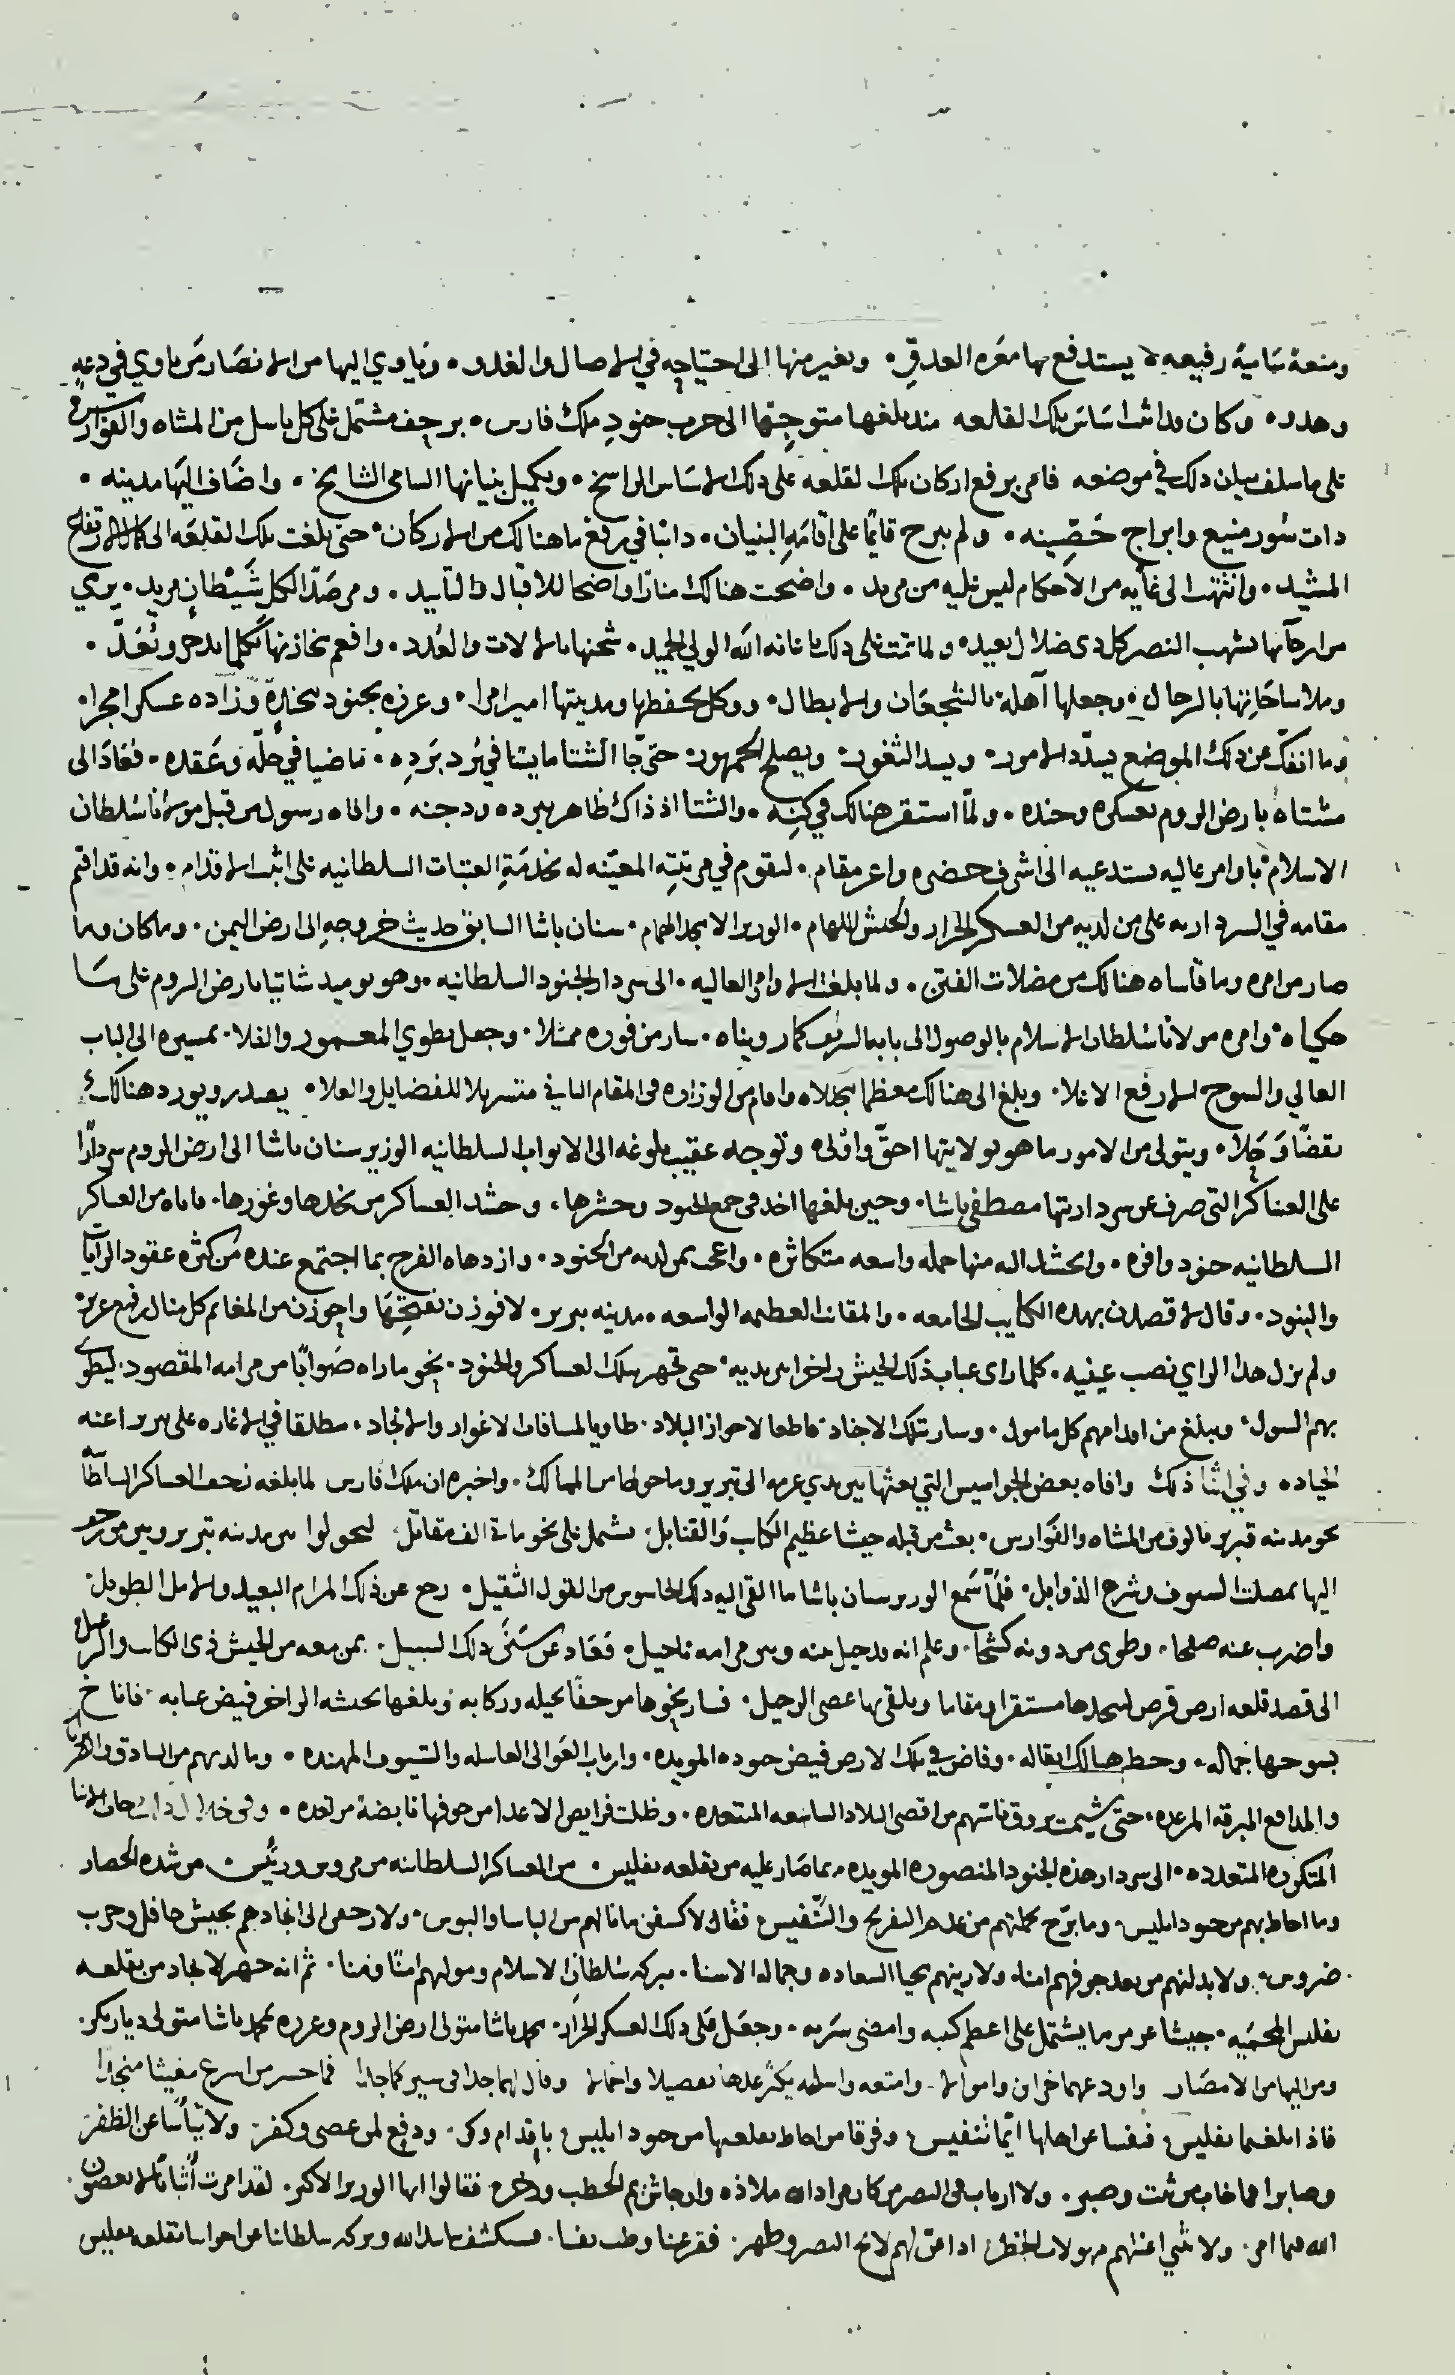 ومنعة سامية رفيعه لا يستدفع بها معره العدو ويغير منها الى احتياجه في الاصال والغدو وياوي اليها من الانصار من ياوي في دعة
وهدو وكان قد اثبت اساس تلك القلعه عند بلغها متوجها الى حرب جنود ملك فارس بزحف مشتمل على كل باسل من المشاه والفوارس
على ما سلف بيان ذلك في موضعه فامر برفع اركان تلك القلعه على ذلك الاساس الراسخ وتكميل بنيانها السامي الشامخ واضاف اليها مدينه
ذات سور منيع وابراج حصينه ولم يبرح قايما على اقامه البنيان دائبا في رفع ما هنالك من الاركان حتى بلغت تلك القلعه الى الارتفاع
المشيد وانتهت الى غايه من الاحكام ليس عليه من مزيد واضحت هنالك منارا واضحا للاقبال والتاييد ومرصدا لكل شيطان مريد يرمي
من ارجآئها بشهب النصر كل ذي ضلال بعيد ولما تمت على ذلك باعانه الله الولي الحميد شحنها بالالات والعدد وافعم مخازنها بكل ما يدخر ويعد
وملا ساحاتها بالرجال وجعلها آهلة بالشجعان والابطال ووكل بحفظها ومدينتها اميرا وعززه بجنود وزاده عسكرا مجرا
وما انفك عن ذلك الموضع يسدد الامور ويسد الثغور ويصلح الجمهور حتى جا الشتا في برد برده ماضيا في حله وعقده فعاد الى
مشتاه بارض الروم بعسكره وجنده ولما استقر هنالك في كنه والشتا اذ ذاك ظاهر ببرده ودجنه وافاه رسول من قبل مولانا سلطان
الاسلام باوامر عاليه يستدعيه الى اشرف حضره واعز مقام ليقوم في مرتبته المعينه له بخدمة العتبات السلطانيه على اثبت الاقدام وانه قد اقيم
مقامه في السرداريه على من لديه من العسكر الجرار والجيش اللهام الوزير الامجد الهمام سنان باشا السابق حديث خروجه الى ارض اليمن وما كان وما
صار من امره وما قاساه هنالك من معضلات الفتن ولما بلغت الاوامر العاليه الى سردار الجنود السلطانيه وهو يوميد شاتيا بارض الروم على ما
حكياه وامره مولانا سلطان الاسلام بالوصول الى بابه الشريف كما رويناه سار من فوره ممتثلا وجعل يطوي المعمور والفلا بمسيره الى الباب
العالي والسوح الارفع الاعلا وبلغ الى هنالك معظما مبجلا واقام من الوزاره في المقام الثاني متسربلا للفضايل والعلا يصدر ويورد هنالك
بعضا وجلا ويتولى من الامور ما هو بولايتها احق واولى وتوجه عقيب بلوغه الى الابواب السلطانيه الوزير سنان باشا الى ارض الروم سردارا
على العساكر التي صرف عن سرداريتها مصطفى باشا وحين بلغها اخذ في جمع الجنود وحشرها وحشد العساكر من نجدها وغورها فاتاه من العساكر
السلطانيه جنود وافره وانحشد اليه منها جمله واسعه متكاثره واعجب بمن لديه من الجنود وازدهاه الفرح بما اجتمع عنده من كثره عقود الرايات
والبنود وقال لاقصدن بهذه الكتايب الجامعه والمقانب العظيمه الواسعه مدينه تبريز لافوزن بفتحها واحوزن من المغانم كل منال رفيع عزيز
ولم يزل هذا الراي نصب عينيه كلما راى عباب ذلك الجيش زاخرا بين يديه حتى تجهز بتلك العساكر والجنود نحو ما راه صوابا من مرامه المقصود ليطوي
بهم السول ويبلغ من اقدامهم كل مامول وسار بتلك الاجناد قاطعا لاحواز البلاد طاويا لمسافات الاغوار والانجاد مطلقا في الاغاره على تبريز اعنه
الجياده وفي اثنا ذلك وافاه بعض الجواسيس التي بعثها بين يدي عزمه الى تبريز وما حولها من الممالك واخبره ان ملك فارس لما بلغه زحف العساكر السلطانية
نحو مدينه تبريز بالوف من المشاه والفوارس بعث من قبله جيشا عظيم الكتايب والقنابل يشتمل على نحو ماية الف مقاتل ليحولوا بين مدينه تبريز وبين من رحف
اليها بمصلت السيوف وشرع الذوابل فلما سمع الوزير سنان باشا ما القى اليه ذلك الجاسوس من القول الثقيل رجع عن ذلك المرام البعيد والامل الطويل
واضرب عنه صفحا وطوى من دونه كشحا وعلم انه قد حيل بينه وبين مرامه فعاد عن سنن ذلك السبيل بمن معه من الجيش ذي الكتايب والرعيل
الى قصد قلعه ارض قرص ليتخذها مستقرا ومقاما ويلقي بها عصى الرحيل فسار نحوها مزحفا بخيله وركابه وبلغها بجيشه الزاخر فيض عبابه فاناخ
بسوحها جماله وحط هنالك اثقاله وفاض في تلك الارض فيض جنوده المويده وارباب العوالي العاسله والسيوف المهنده وما لديهم من البنادق
والمدافع المبرقه المرعده حتى شيمت بروق باسهم من اقصى البلاد الشاسعه المتعدده وظلت فرايص الاعدا من خوفها مرتعده وفي خلال ذلك جات الانبا
المتكرره المتعدده الى سردار هذه الجنود المنصوره المويده بما صار عليه من بقلعه تفليس من العساكر السلطانيه من مروس ورئيس من شده الحصار
وما احاط بهم من جنود ابليس وما برح بجملتهم من عدم التفريج والتنفيس فقال لاكشفن ما نالهم من الباسا والبوس ولازحفن الى انجادهم بجيش حافل وحرب
ضروس ولابدلنهم من بعد خوفهم امنا ولارينهم محيا السعاده وجماله الاسنا ببركه سلطان الاسلام ومولهم امنا ومنا ثم انه جهز لانجاد من بقلعه
تفليس المحميه جيشا عرمرما يشتمل على اعظم كتيبه وامضى سريه وجعل على ذلك العسكر الجرار محمد باشا متولى ارض الروم وعززه بمحمد باشا متولى ديار بكر
ومن اليها من الامصار واودعهما خزاين واموالا وامتعه واسلحه يكثر عدها تفصيلا واجمالا وقال لهما جدا في سيركما جدا فما خسر من اسرع مغيثا منجدا
فاذا بلغتما تفليس فنفسا عن اهلها ايما تنفيس وفرقا من احاط بقلعتها من جنود ابليس باقدام وكر ودفع لمن عصى وكفر ولا تياسا عن الظفر
وصابرا فما خاب من ثبت وصبر ولا ارتاب في النصر من كان من الله ملاذه وان جاش يم الخطب وزخر فقالوا ايها الوزير الاكبر لقد امرت اثباتا لا يعصون
الله فيما امر ولا تثني اعنتهم مهولات الخطر اذا عن لهم لايح النصر وظهر فقر عينا وطب نفسا فسنكشف بتاييد الله وبركه سلطاننا عن اخواننا بقلعه تفليس